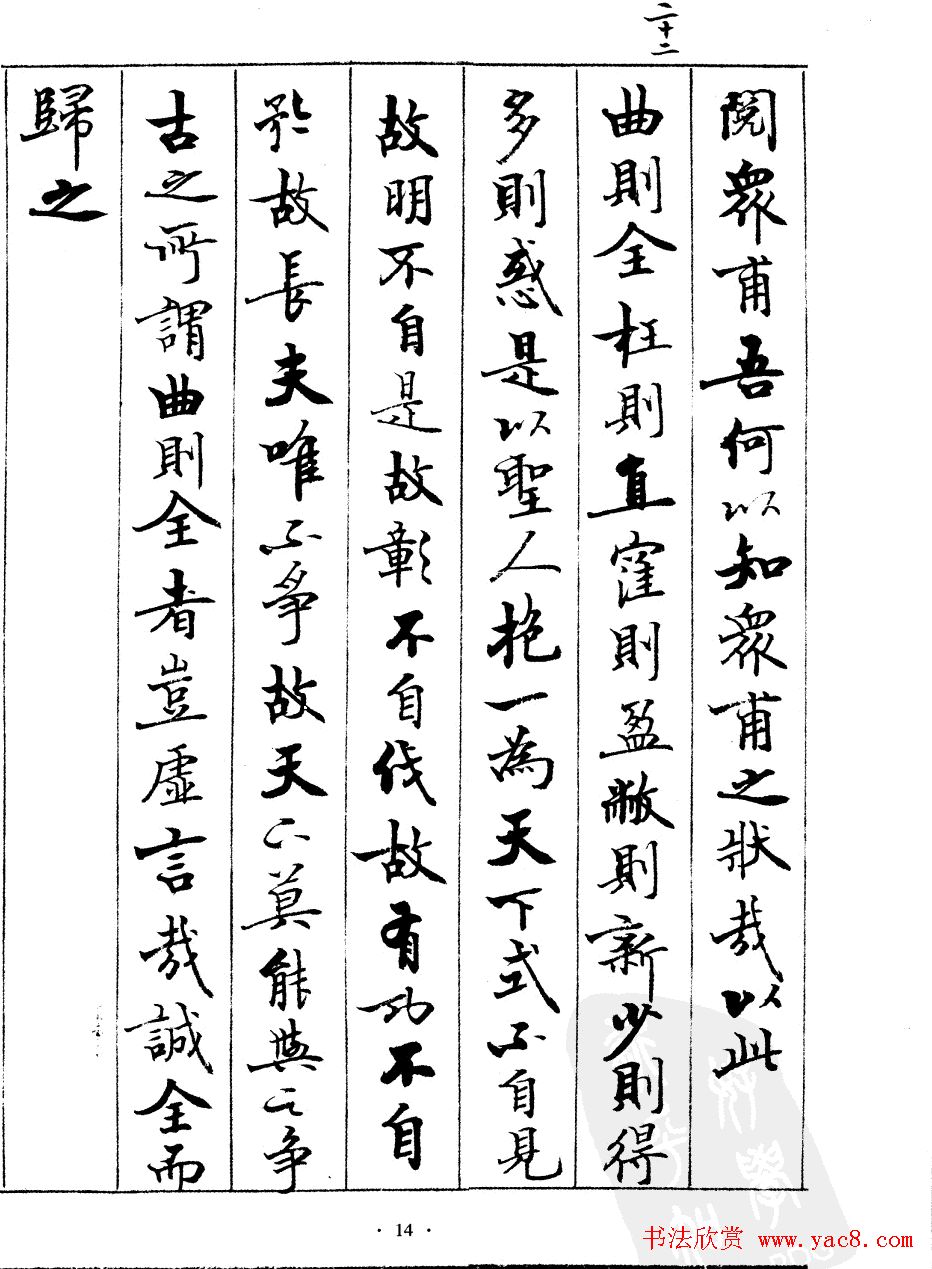 二十二
閱衆甫吾何以知衆甫之狀哉以此
曲則全枉則直窪則盈敝則新少則得
多則惑是以聖人抱一為天下式不自見
故明不自是故彰不自伐故有功不自
矜故長夫唯不爭故天下莫能與之争
古之所謂曲則全者豈虛言哉誠全而
歸之
· 14 ·
书法欣赏 www.yac8.com